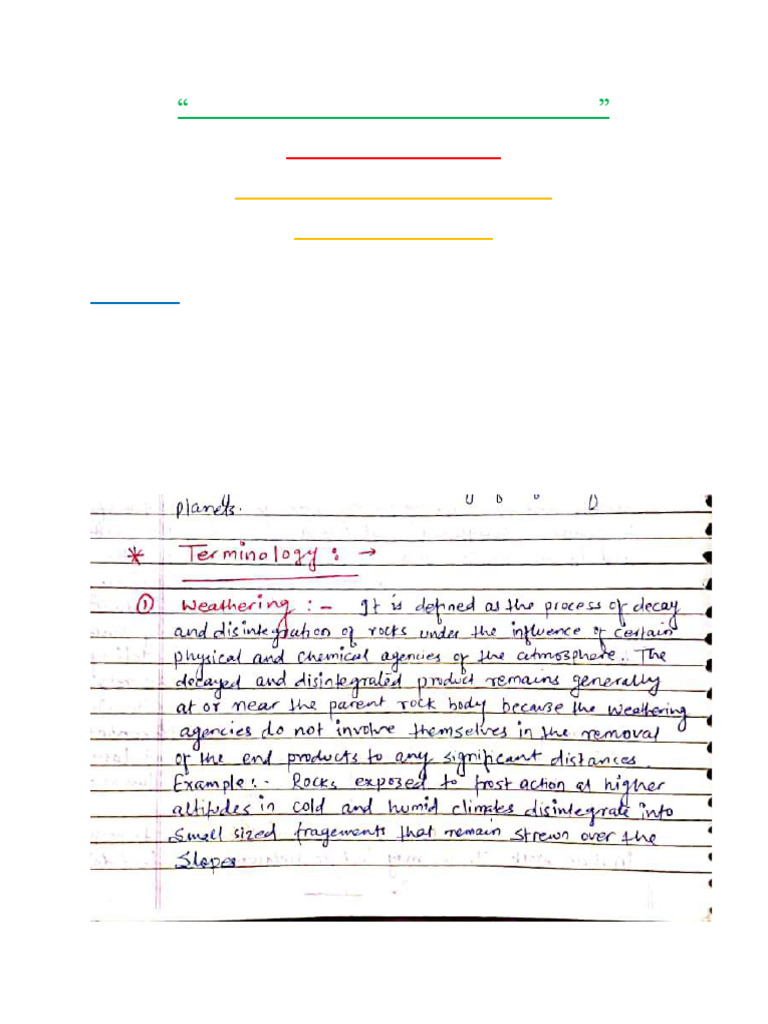 “ ”
planets.
* Terminology : →
① Weathering : - It is defined as the process of decay
and disintegration of rocks under the influence of certain
physical and chemical agencies of the atmosphere. The
decayed and disintegrated product remains generally
at or near the parent rock body because the weathering
agencies do not involve themselves in the removal
of the end products to any significant distances.
Example :- Rocks exposed to frost action at higher
altitudes in cold and humid climates disintegrate into
Small sized fragements that remain strewn over the
Slopes